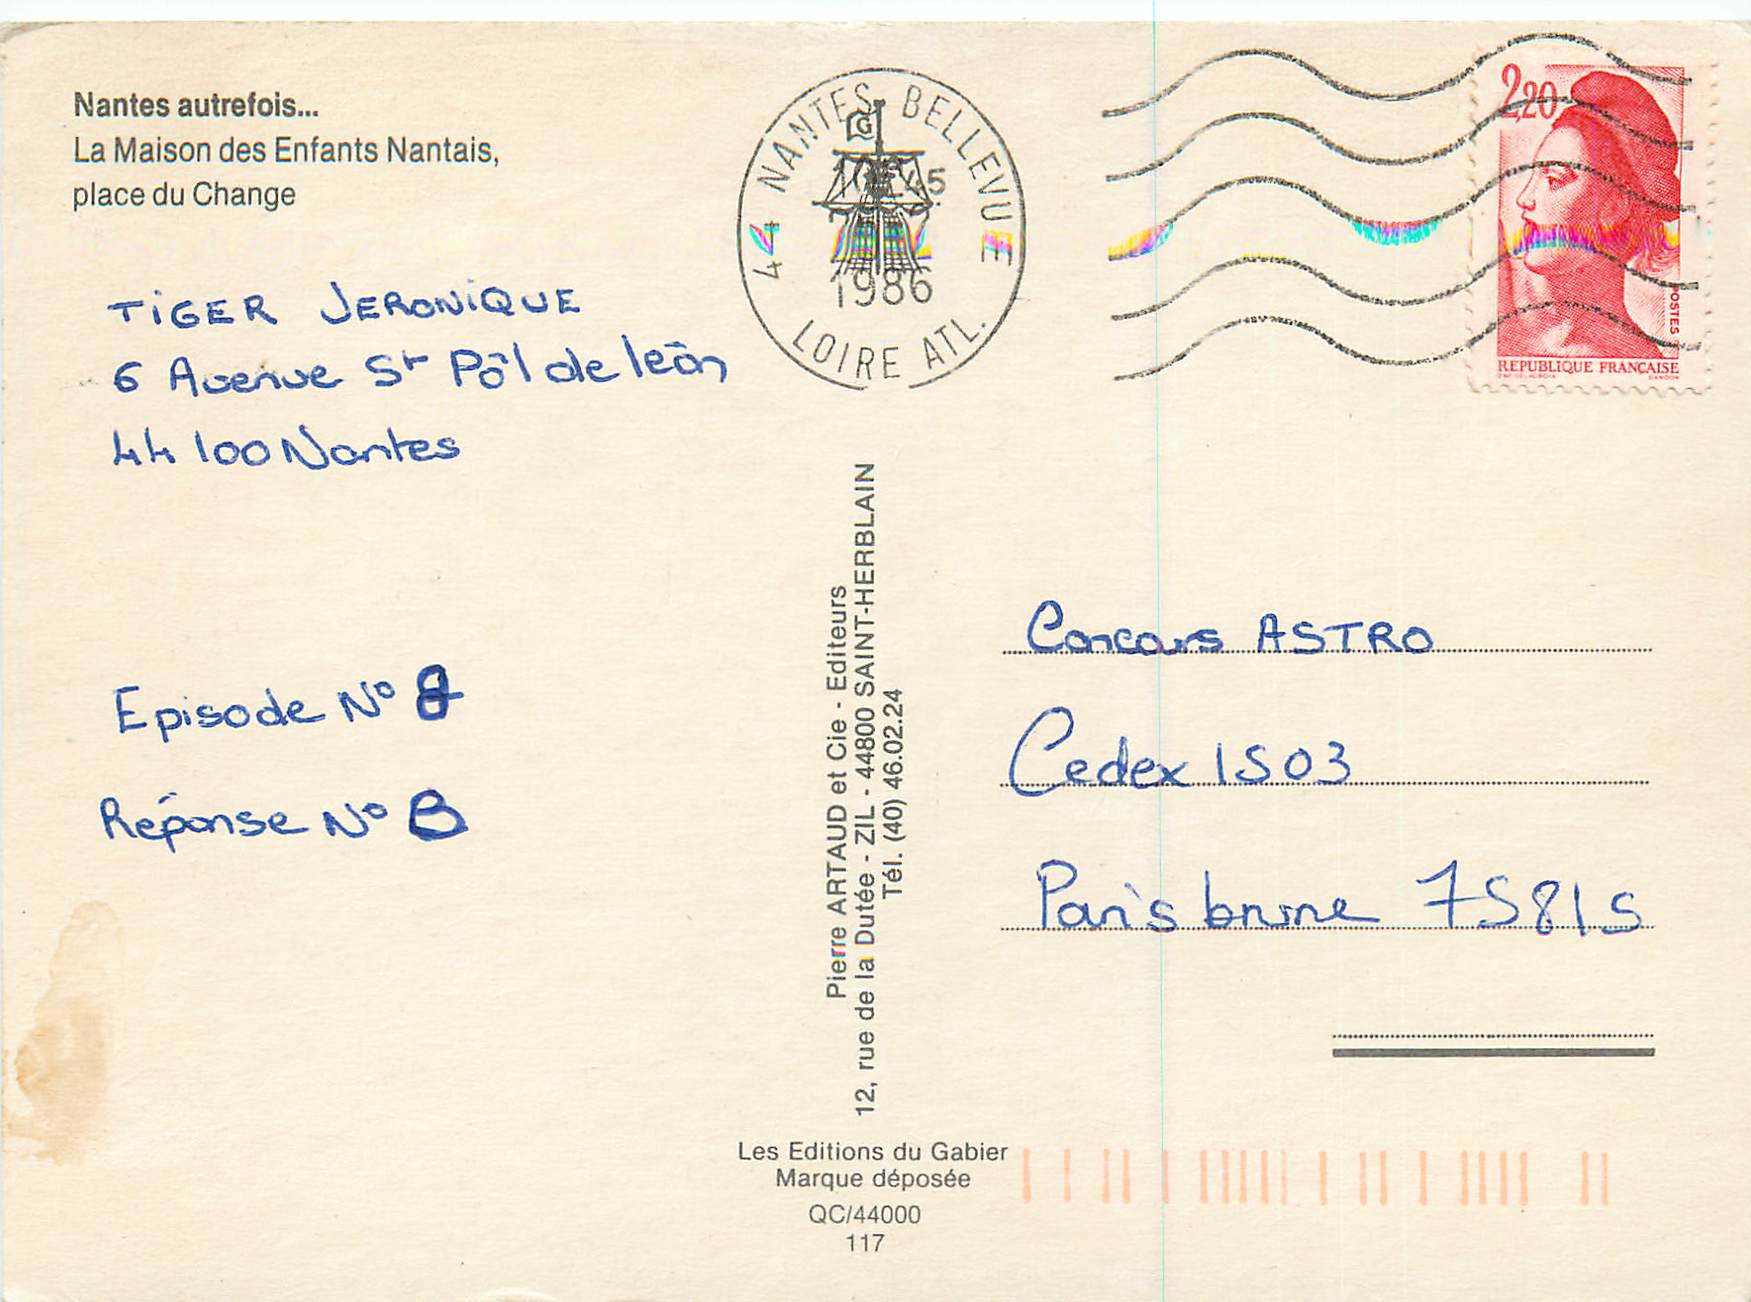 Nantes autrefois...
La Maison des Enfants Nantais,
place du Change
TIGER JERONIQUE
6 Avenue St Pôl de león
44 100 Nantes
Episode N° 8
Réponse N° B
44 NANTES BELLEVUE
1986
LOIRE ATL.
2,20
POSTES
REPUBLIQUE FRANÇAISE
Pierre ARTAUD et Cie - Editeurs
12, rue de la Dutée - ZIL - 44800 SAINT-HERBLAIN
Tél. (40) 46.02.24
Concours ASTRO
Cedex 1503
Paris brune 75815
Les Editions du Gabier
Marque déposée
QC/44000
117